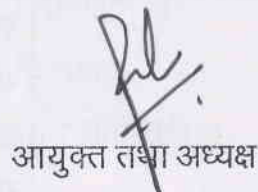 आयुक्त तथा अध्यक्ष